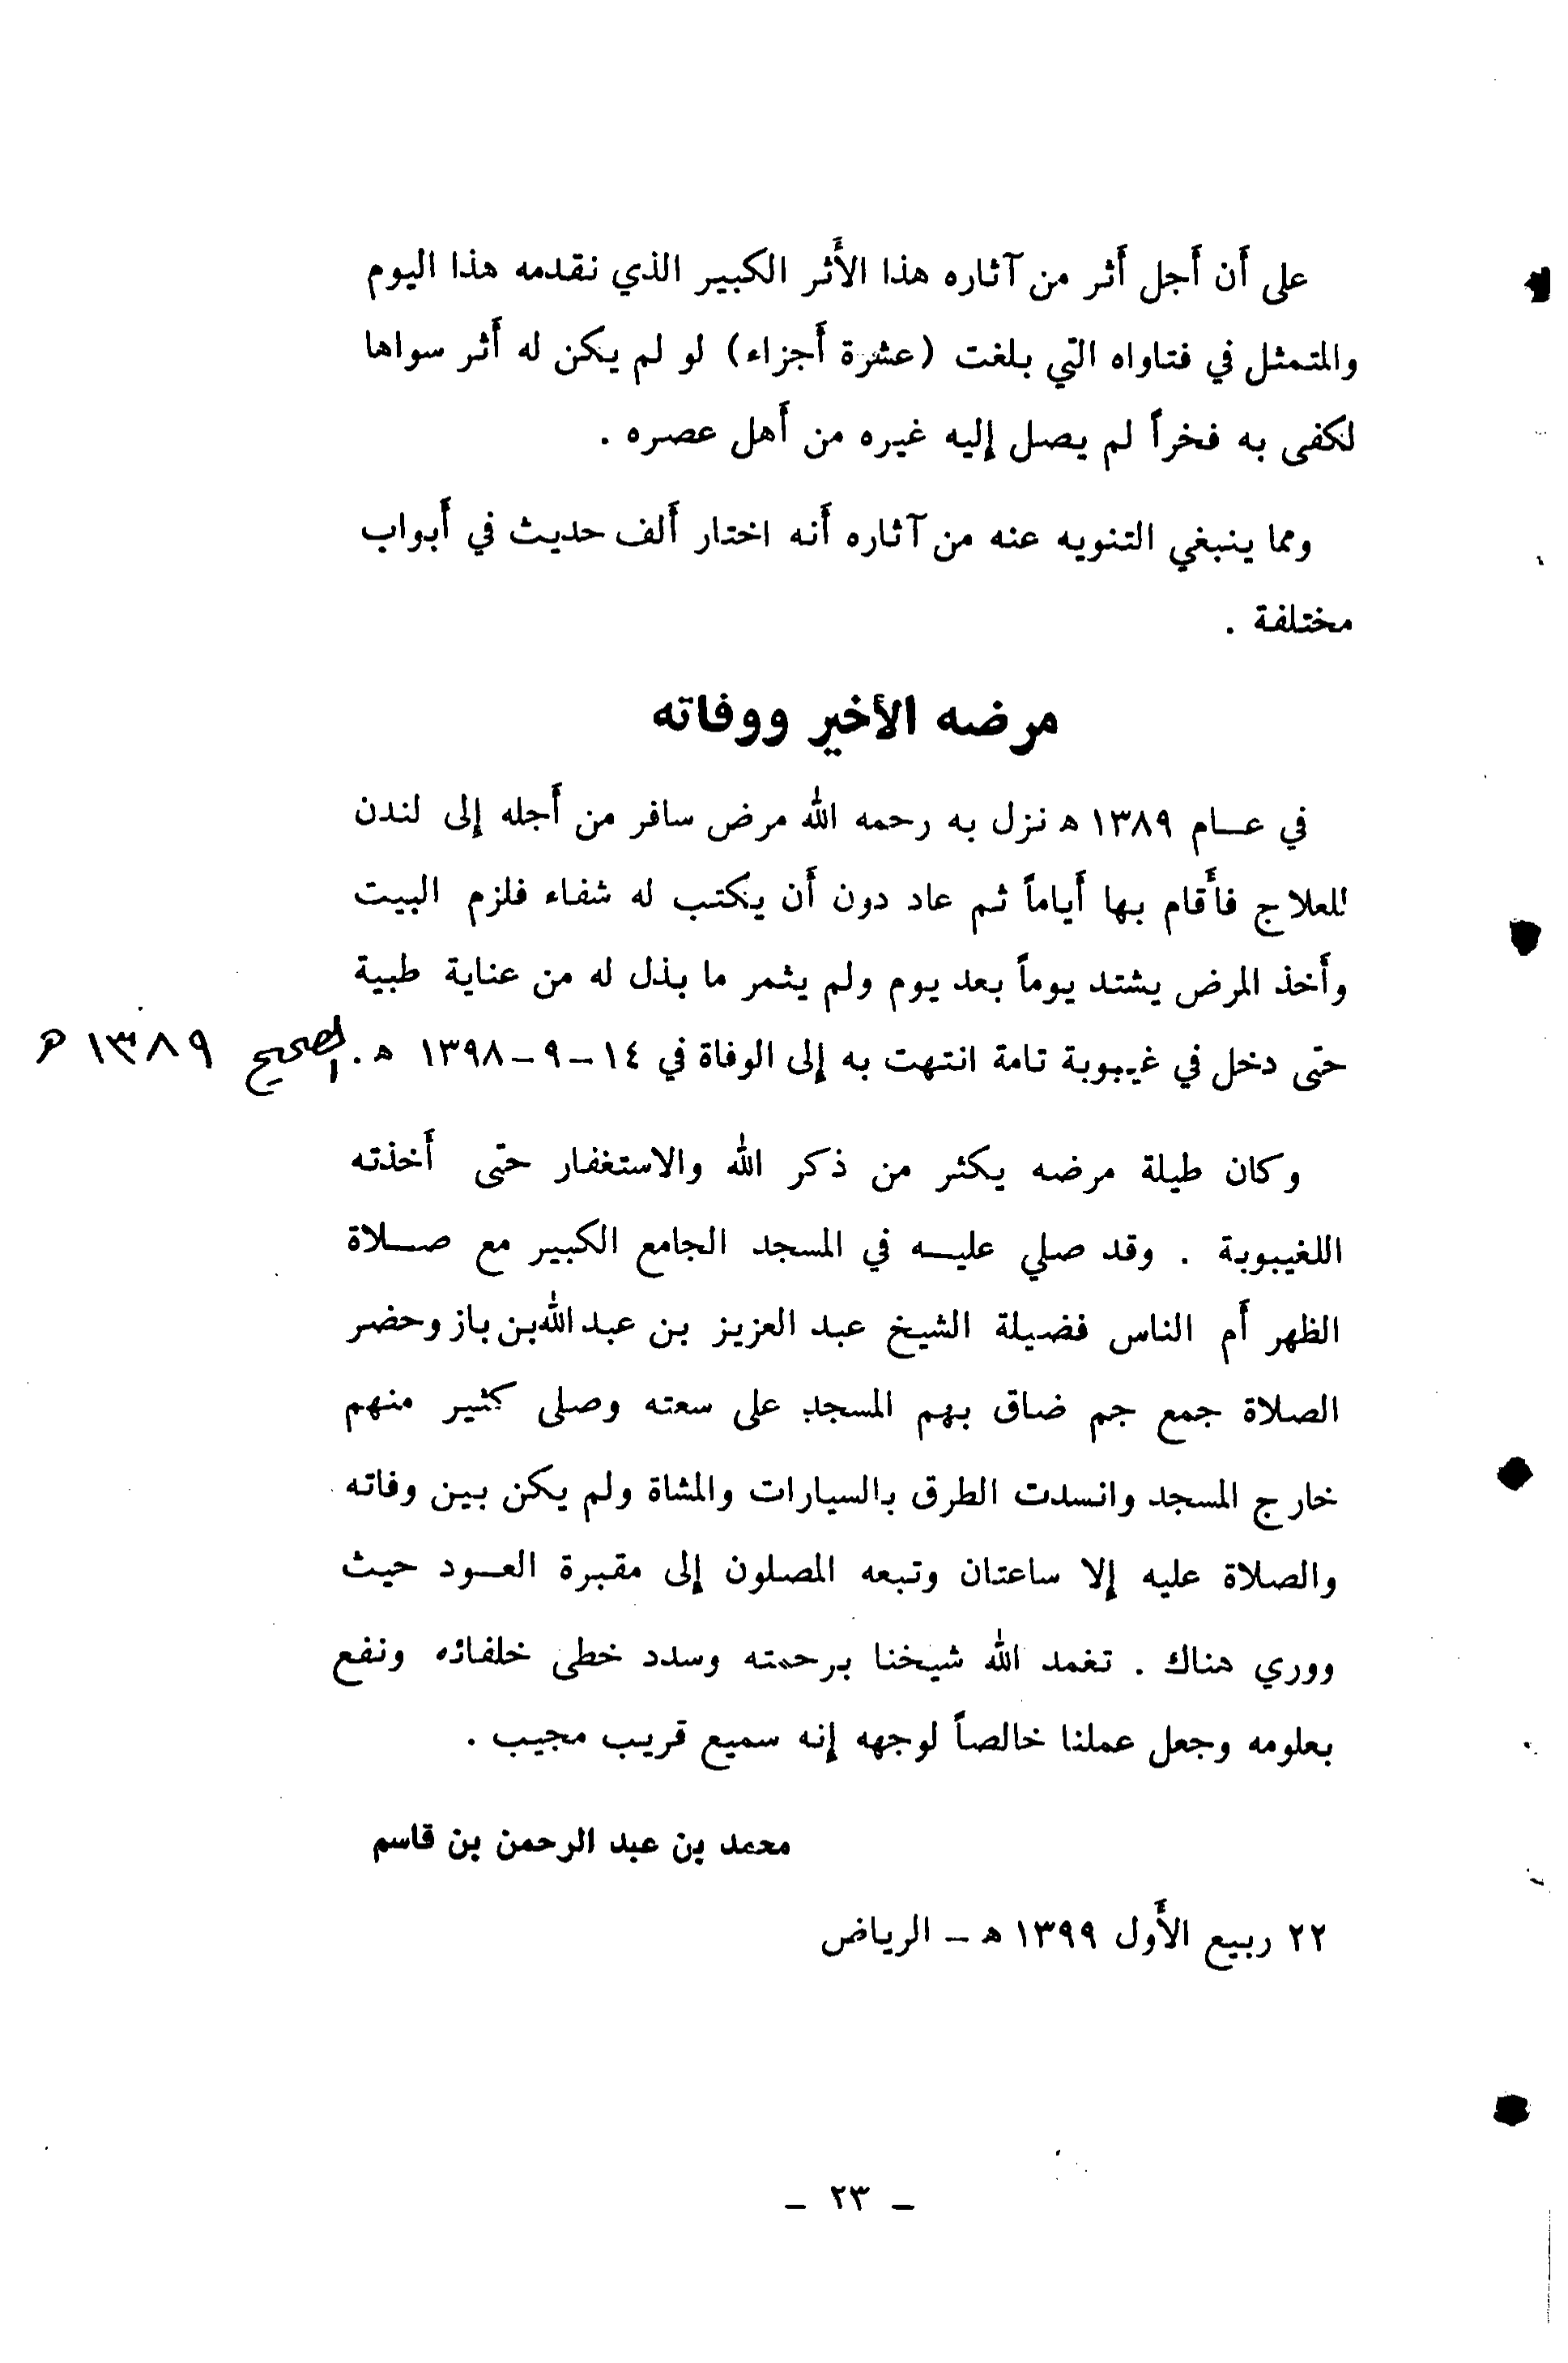 على أن أَجل أَثر من آثاره هذا الأَثر الكبير الذي نقدمه هذا اليوم
والمتمثل في فتاواه التي بلغت (عشرة أَجزاء) لو لم يكن له أَثر سواها
لكفى به فخراً لم يصل إليه غيره من أَهل عصره .
ومما ينبغي التنويه عنه من آثاره أَنه اختار أَلف حديث في أَبواب
مختلفة .
مرضه الأخير ووفاته
في عـام ١٣٨٩ ه نزل به رحمه الله مرض سافر من أَجله إلى لندن
للعلاج فأَقام بها أَياماً ثم عاد دون أَن يكتب له شفاء فلزم البيت
وأَخذ المرض يشتد يوماً بعد يوم ولم يثمر ما بذل له من عناية طبية
حتى دخل في غيبوبة تامة انتهت به إلى الوفاة في ١٤-٩-١٣٩٨ ه . الصحيح ١٣٨٩ هـ
وكان طيلة مرضه يكثر من ذكر الله والاستغفار حتى أَخذته
اللغيبوبة . وقد صلي عليـه في المسجد الجامع الكبير مع صـلاة
الظهر أَم الناس فضيلة الشيخ عبد العزيز بن عبد الله بن باز وحضر
الصلاة جمع جم ضاق بهم المسجد على سعته وصلى كثير منهم
خارج المسجد وانسدت الطرق بالسيارات والمشاة ولم يكن بين وفاته
والصلاة عليه إلا ساعتان وتبعه المصلون إلى مقبرة العـود حيث
ووري هناك . تغمد الله شيخنا برحمته وسدد خطى خلفائه ونفع
بعلومه وجعل عملنا خالصاً لوجهه إنه سميع قريب مجيب .
محمد بن عبد الرحمن بن قاسم
٢٢ ربيع الأَول ١٣٩٩ ه - الرياض
- ٢٣ -